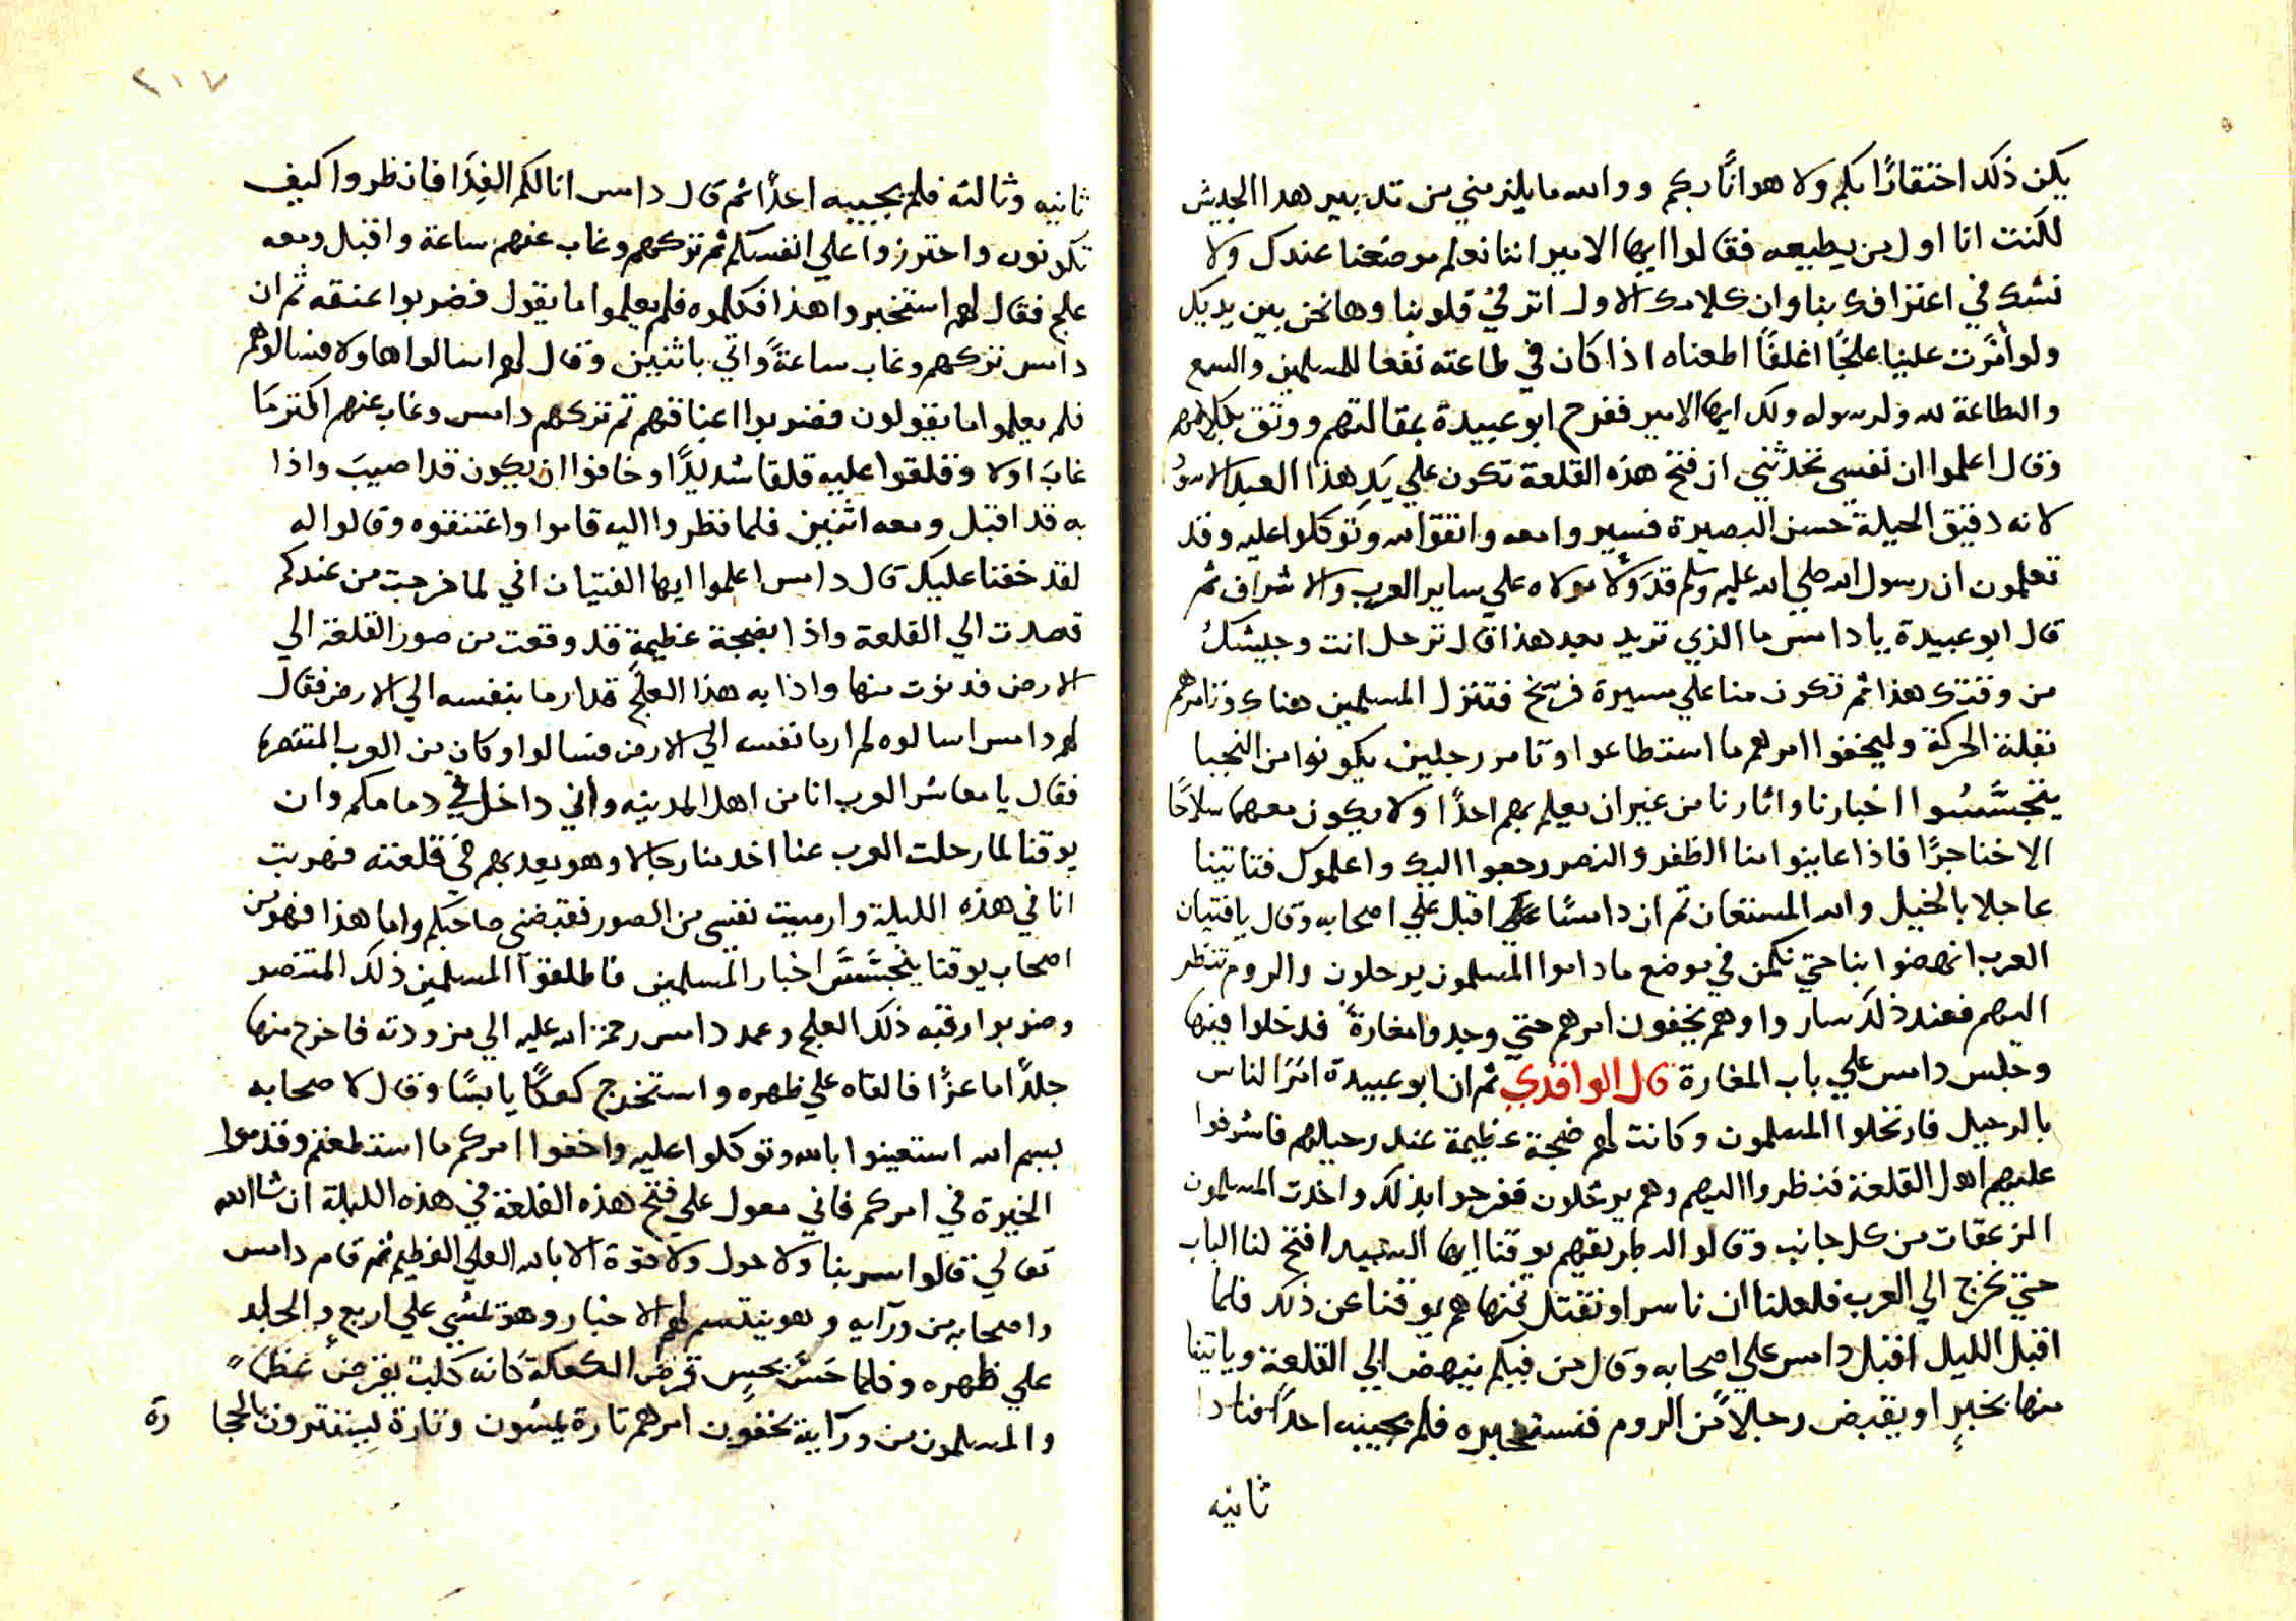 يكن ذلك احتقارًا بكم ولا هوانًا ركم ووالله ما يلزمني من تدبير هدا الجيش
لكنت انا اول من يطيعه فقالوا ايها الامير اننا نعلم موضعنا عندك ولا
نشك في اعترافك بنا وان كلامك الاول اثر في قلوبنا وها نحن بين يديك
ولو أمّرت علينا علجًا اغلفًا اطعناه اذا كان في طاعته نفعا للمسلمين والسمع
والطاعة لله ولرسوله ولك ايها الامير ففرح ابو عبيدة بمقالتهم ووثق بكلامهم
وقال اعلموا ان نفسي تحدثني ان فتح هذه القلعة تكون علي يَدِ هذا العبد الاسود
لانه دقيق الحيلة حسن البصيرة فسيروا معه واتقوا الله وتوكلوا عليه وقد
تعلمون ان رسول الله صلي الله عليه وسلم قد وَلّا مولاه علي ساير العرب والاشراف ثم
قال ابو عبيدة يا دامس ما الذي تريد بعد هذا قال ترحل انت وجيشك
من وقتك هذا ثم تكون منا علي مسيرة فرسخ فتنزل المسلمين هناك وتامرهم
بقلة الحركة وليخفوا امرهم ما استطاعوا وتامر رجلين يكونوا من النجبا
يتجسّسُوا اخبارنا واثارنا من غير ان يعلم بهم احدًا ولا يكون معهما سلاحًا
الا خناجرًا فاذا عاينوا منا الظفر والنصر رجعوا اليك واعلموك فتاتينا
عاجلا بالخيل والله المستعان ثم ان دامسًا اقبل علي اصحابه وقال يا فتيان
العرب انهضوا بنا حتي نكمن في موضع ما داموا المسلمون يرحلون والروم تنظر
اليهم فعند ذلك ساروا وهم يخفون امرهم حتي وجدوا مغارةً فدخلوا فيها
وجلس دامس علي باب المغارة قال الواقدي ثم ان ابو عبيدة امَرَ الناس
بالرحيل فارتحلوا المسلمون وكانت لهم ضجة عظيمة عند رحيلهم فاشرفوا
عليهم اهل القلعة فنظروا اليهم وهم يرتحلون ففرحوا بذلك واخدت المسلمون
الزعقات من كل جانب وقالوا لبطريقهم يوقنا ايها السيد افتح لنا الباب
حتي نخرج الي العرب فلعلنا ان ناسر او نقتل فنهاهم يوقنا عن ذلك فلما
اقبل الليل اقبل دامس علي اصحابه وقال من فيكم ينهض الي القلعة وياتينا
منها بخبرٍ او يقبض رجلاً من الروم فنستخبره فلم يجيبه احدًا فنادا
ثانيه
٢١٧
ثانيه وثالثه فلم يجيبه احدًا ثم قال دامس انا لكم الفِدَا فانظروا كيف
تكونون واحترزوا علي انفسكم ثم تركهم وغاب عنهم ساعة واقبل ومعه
علج فقال لهم استخبروا هذا فكلموه فلم يعلموا ما يقول فضربوا عنقه ثم ان
دامس تركهم وغاب ساعةً واتي باثنين وقال لهم اسالوا هاولا فسالوهم
فلم يعلموا ما يقولون فضربوا اعناقهم ثم تركهم دامس وغاب عنهم اكثر مَا
غابَ اولا وقلقوا عليه قلقا شديدًا وخافوا ان يكون قد اصيبَ واذا
به قد اقبل ومعه اثنين فلما نظروا اليه قاموا واعتنقوه وقالوا له
لقد خفنا عليك قال دامس اعلموا ايها الفتيان اني لما خرجت من عندكم
قصدت الي القلعة واذا بضجة عظيمة قد وقعت من صور القلعة الي
الارض فدنوت منها واذا به هذا العلج قد ارما بنفسه الي الارض فقال
لهم دامس اسالوه لم ارما نفسه الي الارض فسالوا وكان من العرب المتنصره
فقال يا معاشر العرب انا من اهل المدينه واني داخل في دمامكم وان
يوقنا لما رحلت العرب عنا اخد منا رجالا وهو يعدبهم في قلعته فهربت
انا في هذه الليلة وارميت نفسي من الصور فقبضني صاحبكم واما هذا فهو من
اصحاب يوقنا يتجسّسَ اخبار المسلمين فاطلقوا المسلمين ذلك المتنصر
وضربوا رقبه ذلك العلج وعمد دامس رحمة الله عليه الي مزودته فاخرج منها
جلدًا ماعزًا فالقاه علي ظهره واستخرج كعكًا يابسًا وقال لاصحابه
بسم الله استعينوا بالله وتوكلوا عليه واخفوا امركم ما استطعتم وقدموا
الخيرة في امركم فاني معول علي فتح هذه القلعة في هذه الليلة ان شا الله
تعالي قالوا سر بنا ولا حول ولا قوة الا بالله العلي العظيم ثم قام دامس
واصحابه من ورآيه وهو يتقسم لهم الاخبار وهو يمشي علي اربعٍ والجلد
علي ظهره وفلما حَسَّ بحسٍ قرض الكعكة كانه كلبٌ يقرضُ عظمًا
والمسلمون من ورآيه يخفون امرهم تارة يمشون وتارة يستترون بالحجا رة